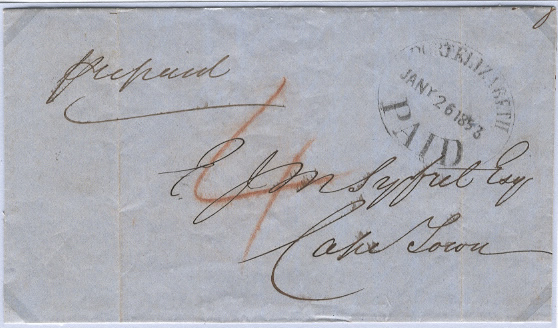 prepaid
PORT ELIZABETH
JANY 26 1853
PAID
4
E J M Syfret Esq
Cape Town